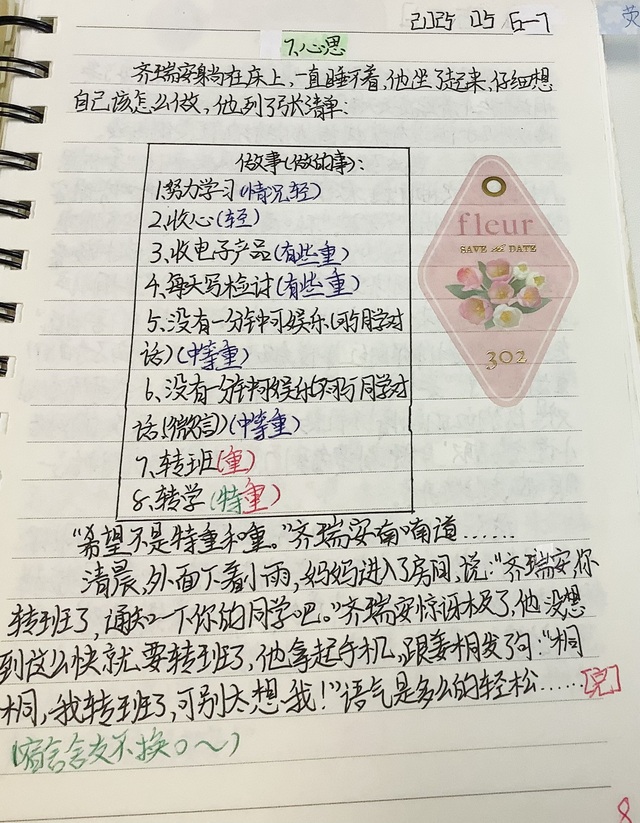 2025 05 6-7
荧
7.心思
齐瑞安躺在床上,一直睡不着,他坐了起来,仔细想
自己该怎么做,他列了张清单:
做事(做的事):
1.努力学习(情况轻)
2.收心(轻)
3.收电子产品(有些重)
4.每天写检讨(有些重)
5.没有一分钟可娱乐(可与同学对
话)(中等重)
6.没有一分钟可娱乐(不可与同学对
话(微信))(中等重)
7.转班(重)
8.转学(特重)
fleur
SAVE the DATE
302
“希望不是特重和重。”齐瑞安喃喃道……
清晨,外面下着小雨,妈妈进入了房间,说:“齐瑞安,你
转班了,通知一下你的同学吧。”齐瑞安惊讶极了,他没想
到这么快就要转班了,他拿起手机,跟姜桐发了句:“桐
桐,我转班了,可别太想我!”语气是多么的轻松……[完]
(宿舍舍友不换。~)
8